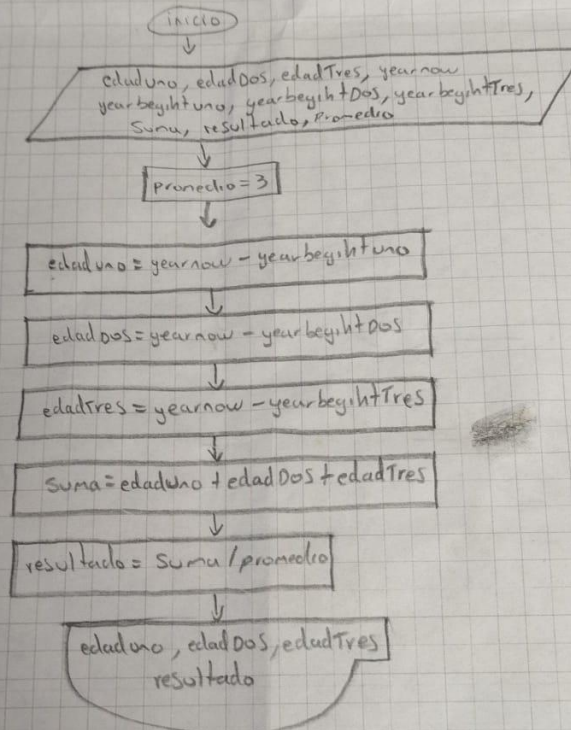 inicio
edaduno, edadDos, edadTres, yearnow
yearbegihtuno, yearbegihtDos, yearbegihtTres,
Suma, resultado, Promedio
promedio = 3
edaduno = yearnow - yearbegihtuno
edadDos = yearnow - yearbegihtDos
edadTres = yearnow - yearbegihtTres
suma = edaduno + edadDos + edadTres
resultado = suma / promedio
edaduno, edadDos, edadTres
resultado